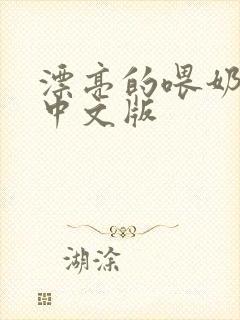 漂亮的喂奶
中文版
湖涂